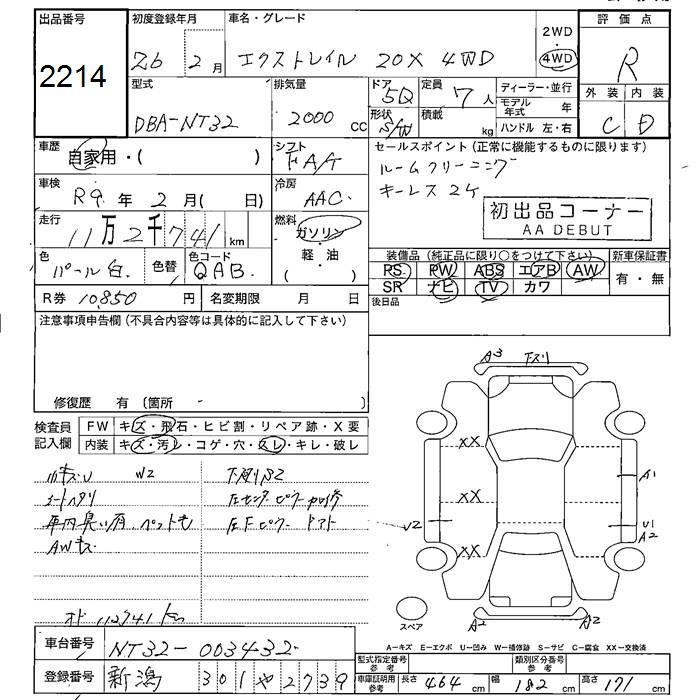 出品番号
2214
初度登録年月
26 2 月
車名・グレード
エクストレイル 20X 4WD
2WD
4WD
評価点
R
外装 内装
C D
型式
DBA-NT32
排気量
2000 cc
ドア
5D
形状
S/W
定員
7 人
積載
kg
ディーラー・並行
モデル年式 年
ハンドル 左・右
車歴
自家用・( )
シフト
FA/T
セールスポイント (正常に機能するものに限ります)
ルームクリーニング
キーレス2ケ
初出品コーナー
AA DEBUT
車検
R9 年 2 月( 日)
冷房
AAC
走行
11万2千741 km
燃料
ガソリン
・
軽・油
( )
色
パール白
色替
色コード
QAB
装備品 (純正品に限り○をつけて下さい)
新車保証書
PS PW ABS エアB AW
SR ナビ TV カワ
有・無
後日品
R券 10,850 円
名変期限 月 日
注意事項申告欄 (不具合内容等は具体的に記入して下さい)
修復歴 有 (箇所 )
検査員記入欄
FW キズ・飛石・ヒビ割・リペア跡・X要
内装 キズ・汚レ・コゲ・穴・スレ・キレ・破レ
W2
AWキズ
オド 112741 km
A3 下スリ
XX
XX
XX
A1
U2
U1
A2
A2
A2
スペア
A-キズ E-エクボ U-凹み W-補修跡 S-サビ C-腐食 XX-交換済
車台番号
NT32-003432
登録番号
新潟 301 や 2739
型式指定番号
参考
類別区分番号
参考
車庫証明用
参考
長さ 464 cm
幅 182 cm
高さ 171 cm